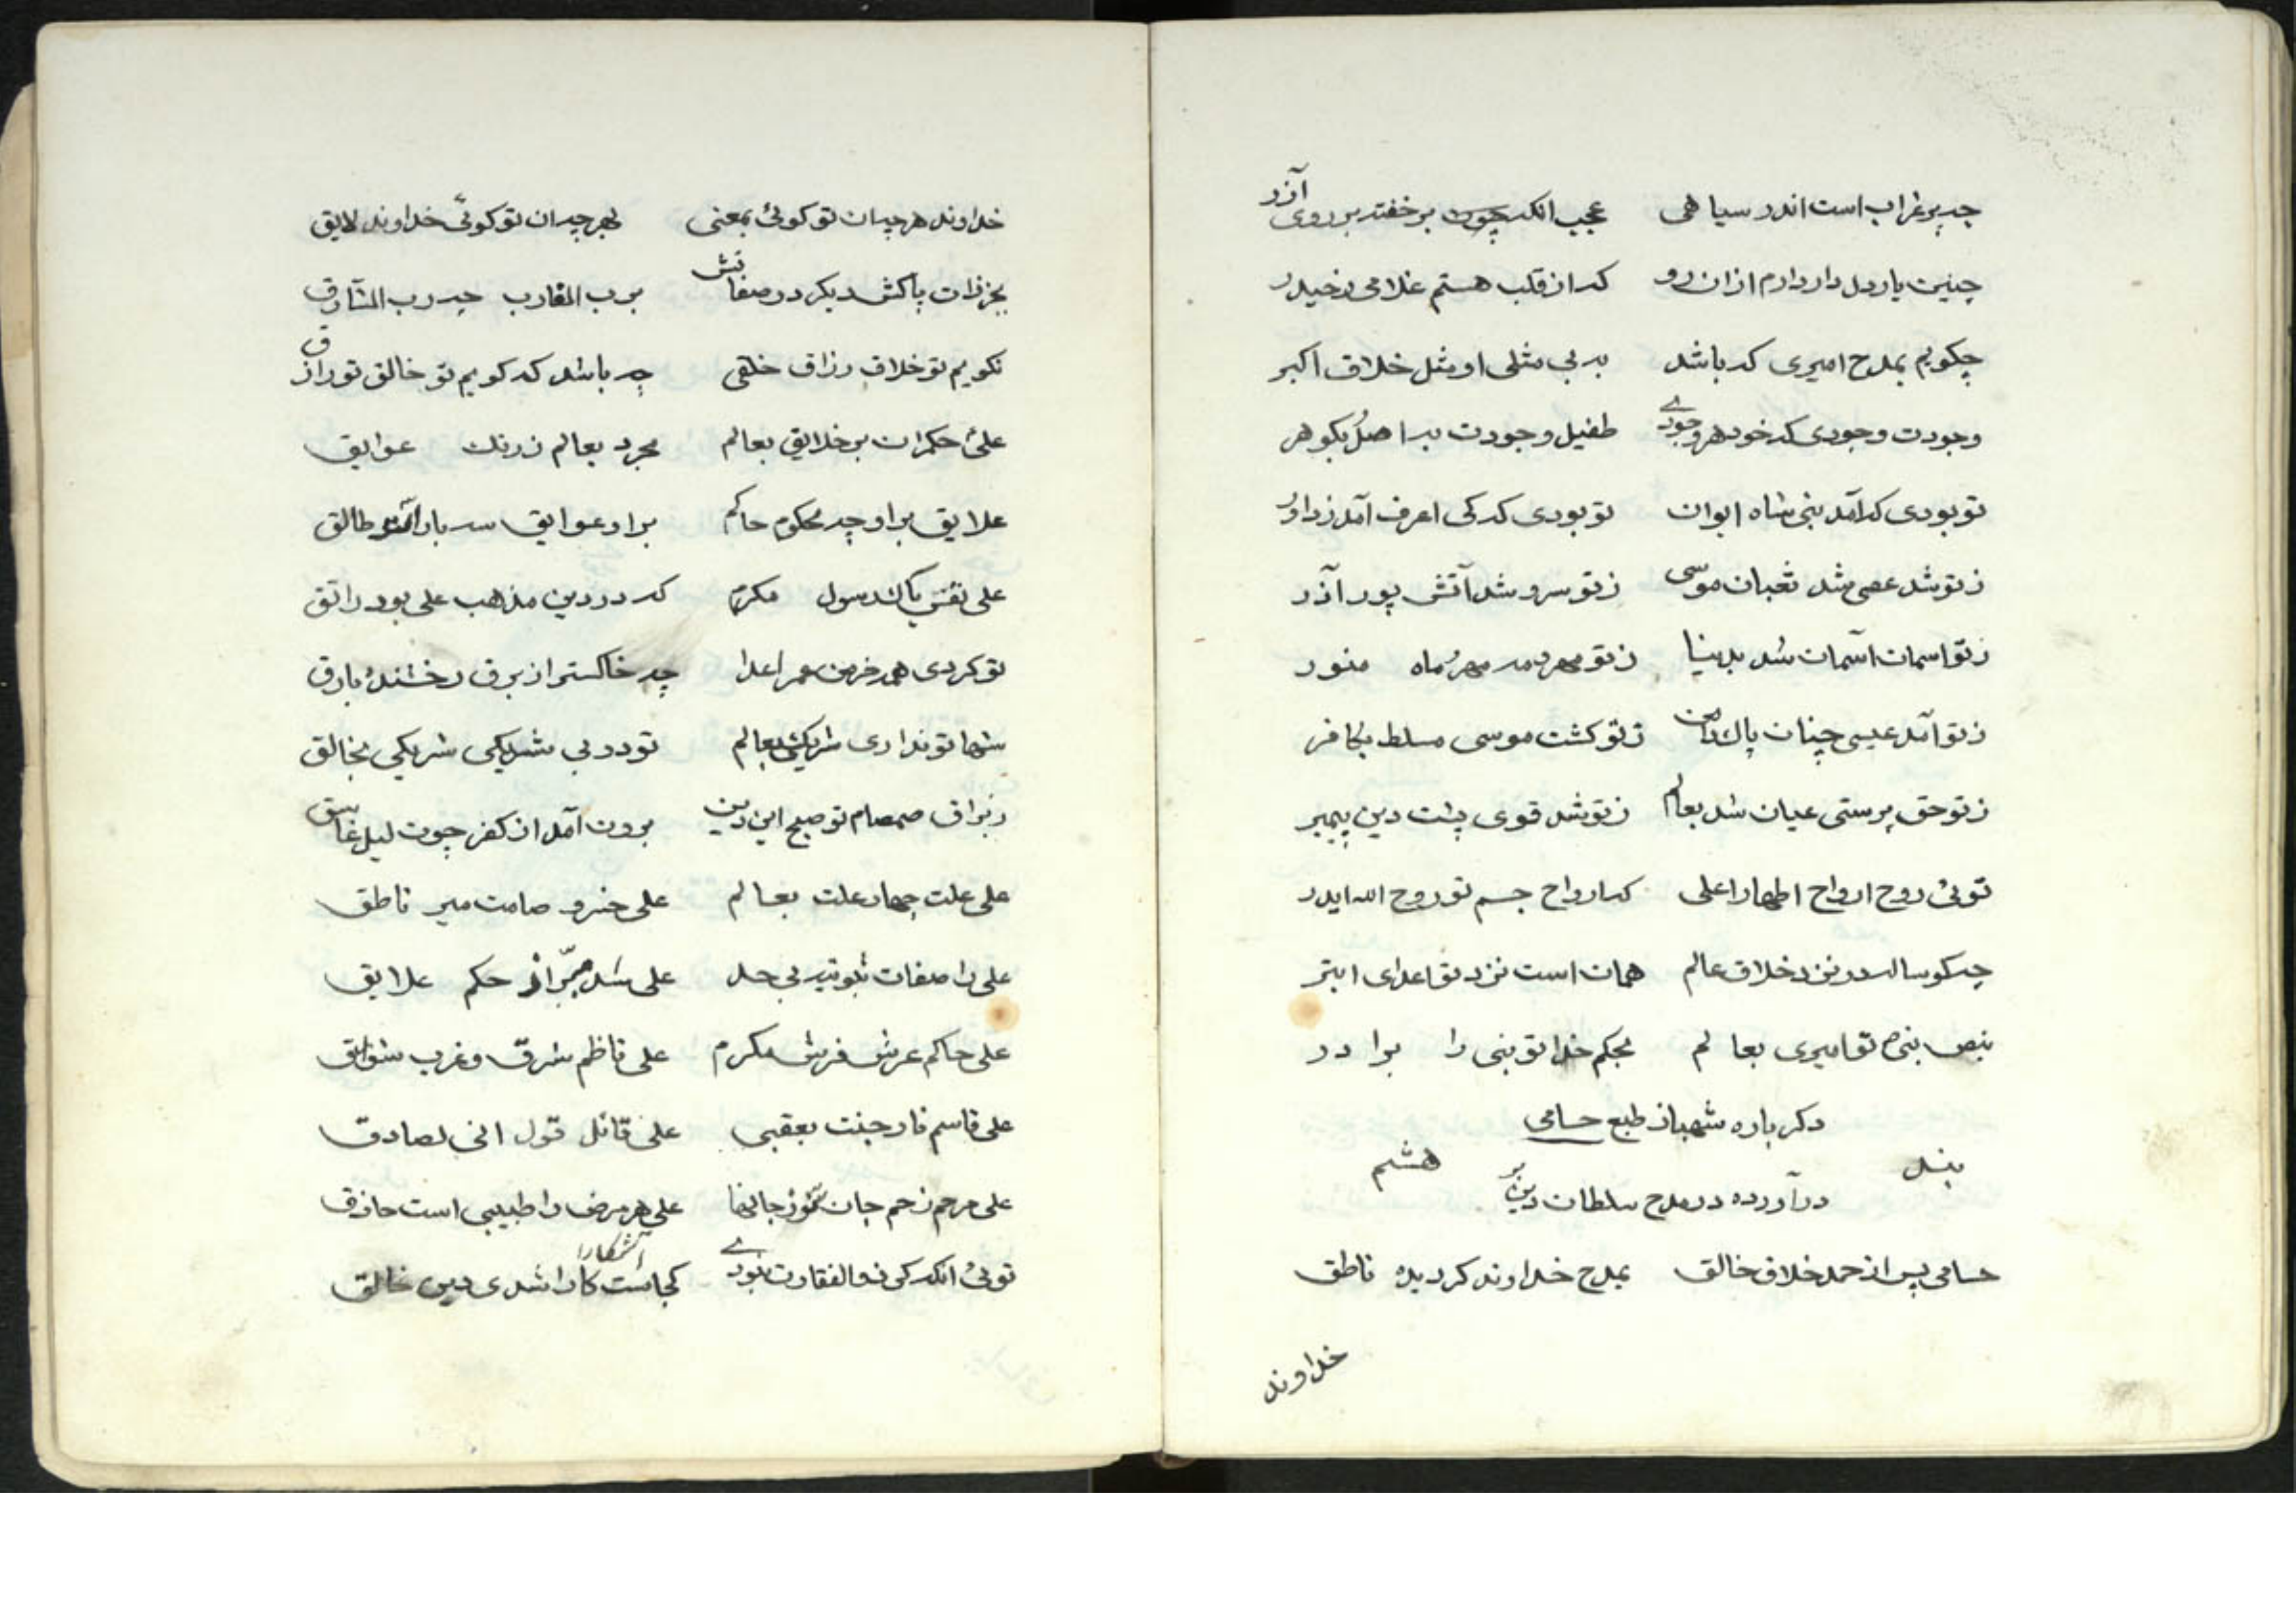 چه پر غراب است اندر سیاهی عجب انکه چون بر خفته بر روی آذر
چنین یار دل دار دارم ازان رو که از قلب هستم غلامی
چکویم بمدح امیری که باشد به بی مثلی او مثل خلاق اکبر
وجودت وجودی که خود هر وجودے طفیل وجودت به اصل بکوهر
تو بودی که آمد بنی شاه ایوان تو بودی که کی اعرف آمد ز داور
ز تو شد عصی شد ثعبان موسی ز تو سرو شد آتش پور آذر
ز تو اسمان آسمان شد بدینیا ز تو مهر و مه مهر ماه منور
ز تو آمد عیسی چنان پاک ز تو کشت موسی مسلط بکافر
ز تو حق پرستی عیان شد بعالم ز تو شد قوی پشت دین پیمبر
توئی روح ارواح اطهار اعلی که ارواح جسم تو روح الله ایدر
نزد خلاق عالم همان است نزد تو اعدای ابتر
بنص بنی تو امیری بعالم بحکم خدا تو بنی را برادر
دکر باره شهباز طبع حسامی
بند هشتم
در آورده در مدح سلطان دین پر
حسامی پس از حمد خلاق خالق بمدح خداوند کردیده ناطق
خداوند
خداوند هر چه ان تو کوئی بمعنی بهر چه ان تو کوئی خداوند لایق
بجز ذات پاکش دیکر در صفاتش برب المقارب چه رب المشارق
نکویم تو خلاق رزاق خلقی چه باشد که کویم تو خالق تو رازق
علی حکمران بر خلایق بعالم مجرد بعالم ز رنک عوایق
علایق براو چه محکوم حاکم براو عوایق سه بار طالق
علی نفس پاک رسول مکرم که در دین مذهب علی بود راتق
تو کردی همه خرمن عمر اعدا چه خاکستر از برق رخشنده بارق
شها تو نداری شریکی بعالم تو در بی شریکی شریکی بخالق
ز براق صمصام تو صبح این دین برون آمد از کفر چون لیل غاسق
علی علت چهار علت بعالم علی خسرو صامت میر ناطق
علی را صفات ثبوتیه بی حد علی شد مبرّا از حکم علایق
علی حاکم عرش فرش مکرم علی ناظم شرق و غرب
علی قاسم نار جنت بعقبی علی قائل قول انی لصادق
علی مرحم زخم جان علی هر مرض را طبیبی است حاذق
توئی انکه کی ذوالفقارت نبودے کجا آشکارا شدی دین خالق